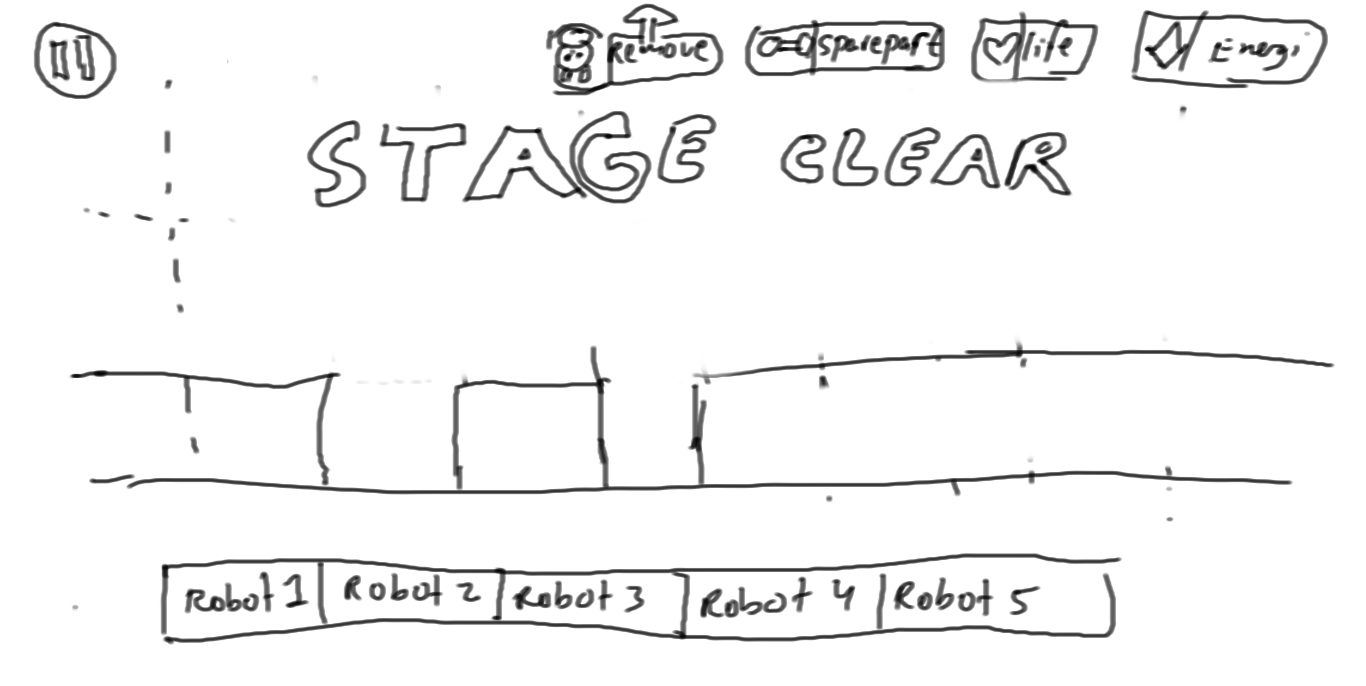 Remove sparepart life Energi
STAGE CLEAR
Robot 1 Robot 2 Robot 3 Robot 4 Robot 5